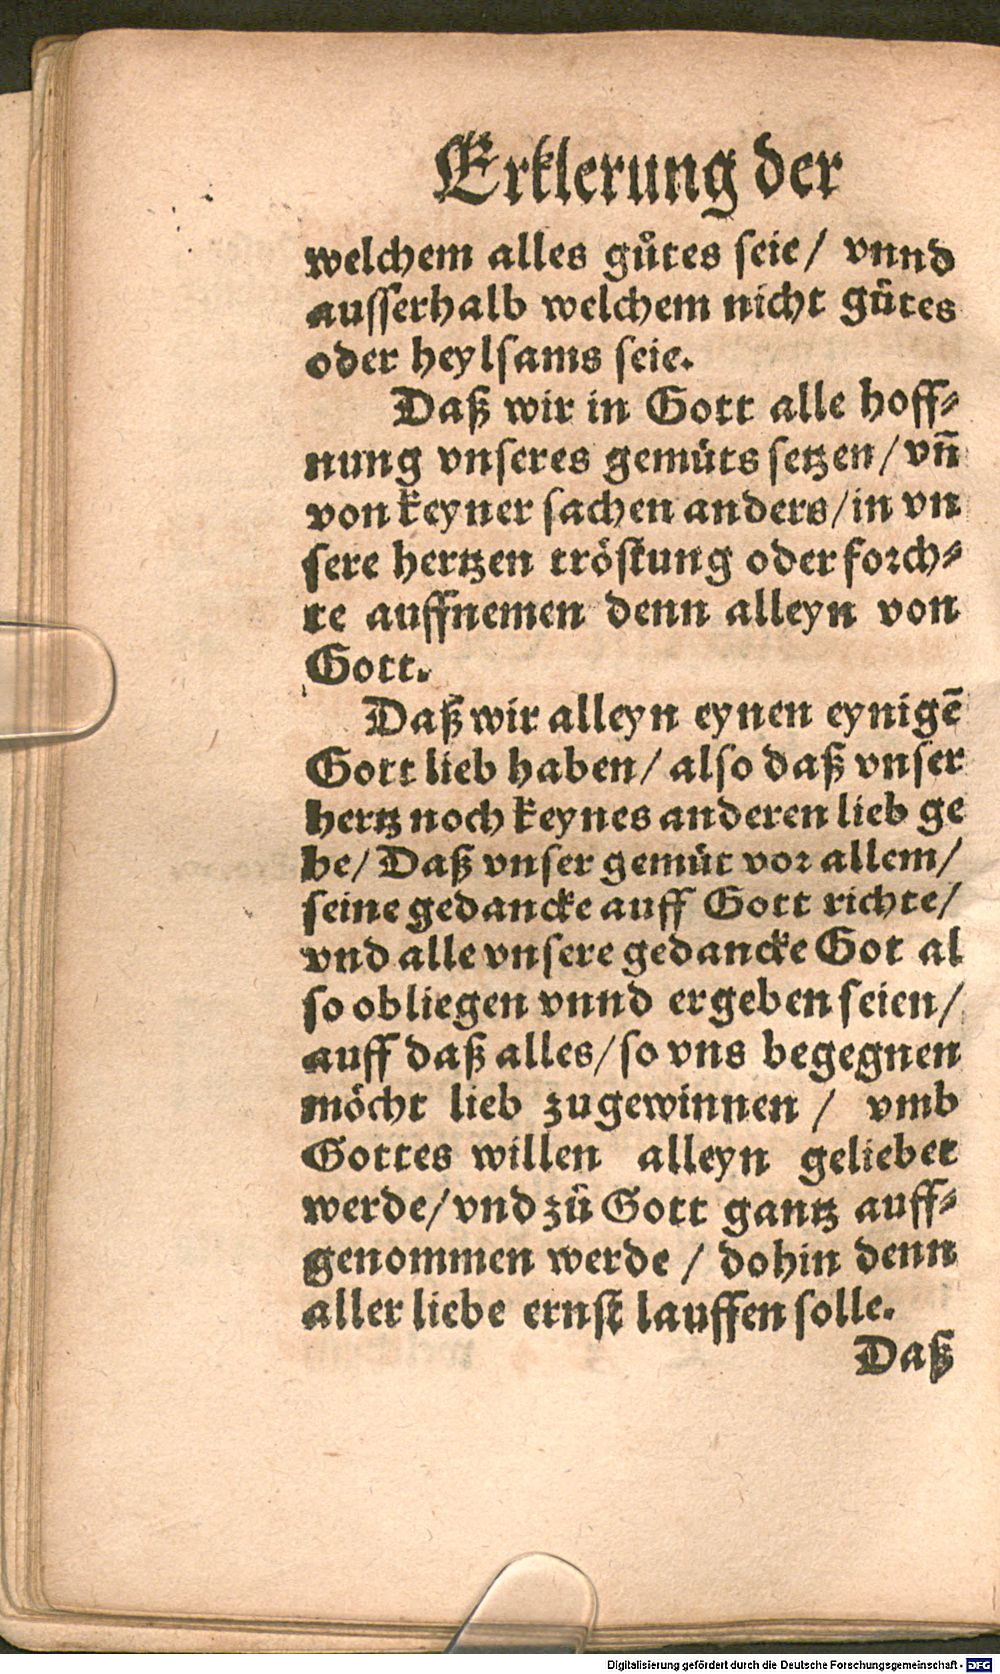 Erklerung der
welchem alles gůtes seie/ vnnd
ausserhalb welchem nicht gůtes
oder heylsams seie.
Daß wir in Gott alle hoff⸗
nung vnseres gemüts setzen/ vñ
von keyner sachen anders/ in vn
sere hertzen tröstung oder forch⸗
te auffnemen denn alleyn von
Gott.
Daß wir alleyn eynen eynigē
Gott lieb haben/ also daß vnser
hertz noch keynes anderen lieb ge
be/ Daß vnser gemüt vor allem/
seine gedancke auff Gott richte/
vnd alle vnsere gedancke Got al
so obliegen vnnd ergeben seien/
auff daß alles/ so vns begegnen
möcht lieb zugewinnen / vmb
Gottes willen alleyn geliebet
werde/ vnd zů Gott gantz auff⸗
genommen werde / dohin denn
aller liebe ernst lauffen solle.
Daß
Digitalisierung gefördert durch die Deutsche Forschungsgemeinschaft - DFG